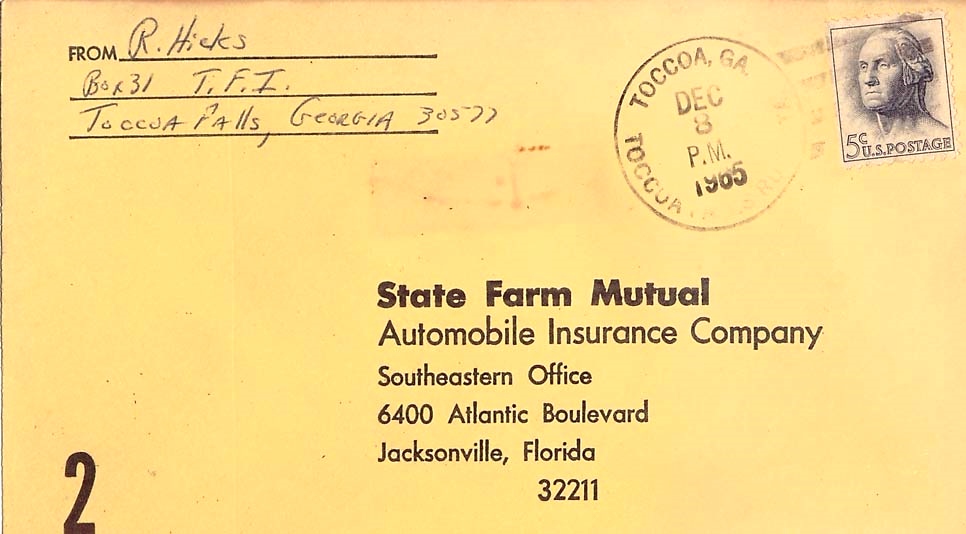 FROM R. Hicks
Box 31 T.F.I.
Toccoa Falls, Georgia 30577
TOCCOA, GA.
DEC
8
P.M.
1965
TOCCOA
5c U.S. POSTAGE
State Farm Mutual
Automobile Insurance Company
Southeastern Office
6400 Atlantic Boulevard
Jacksonville, Florida
32211
2